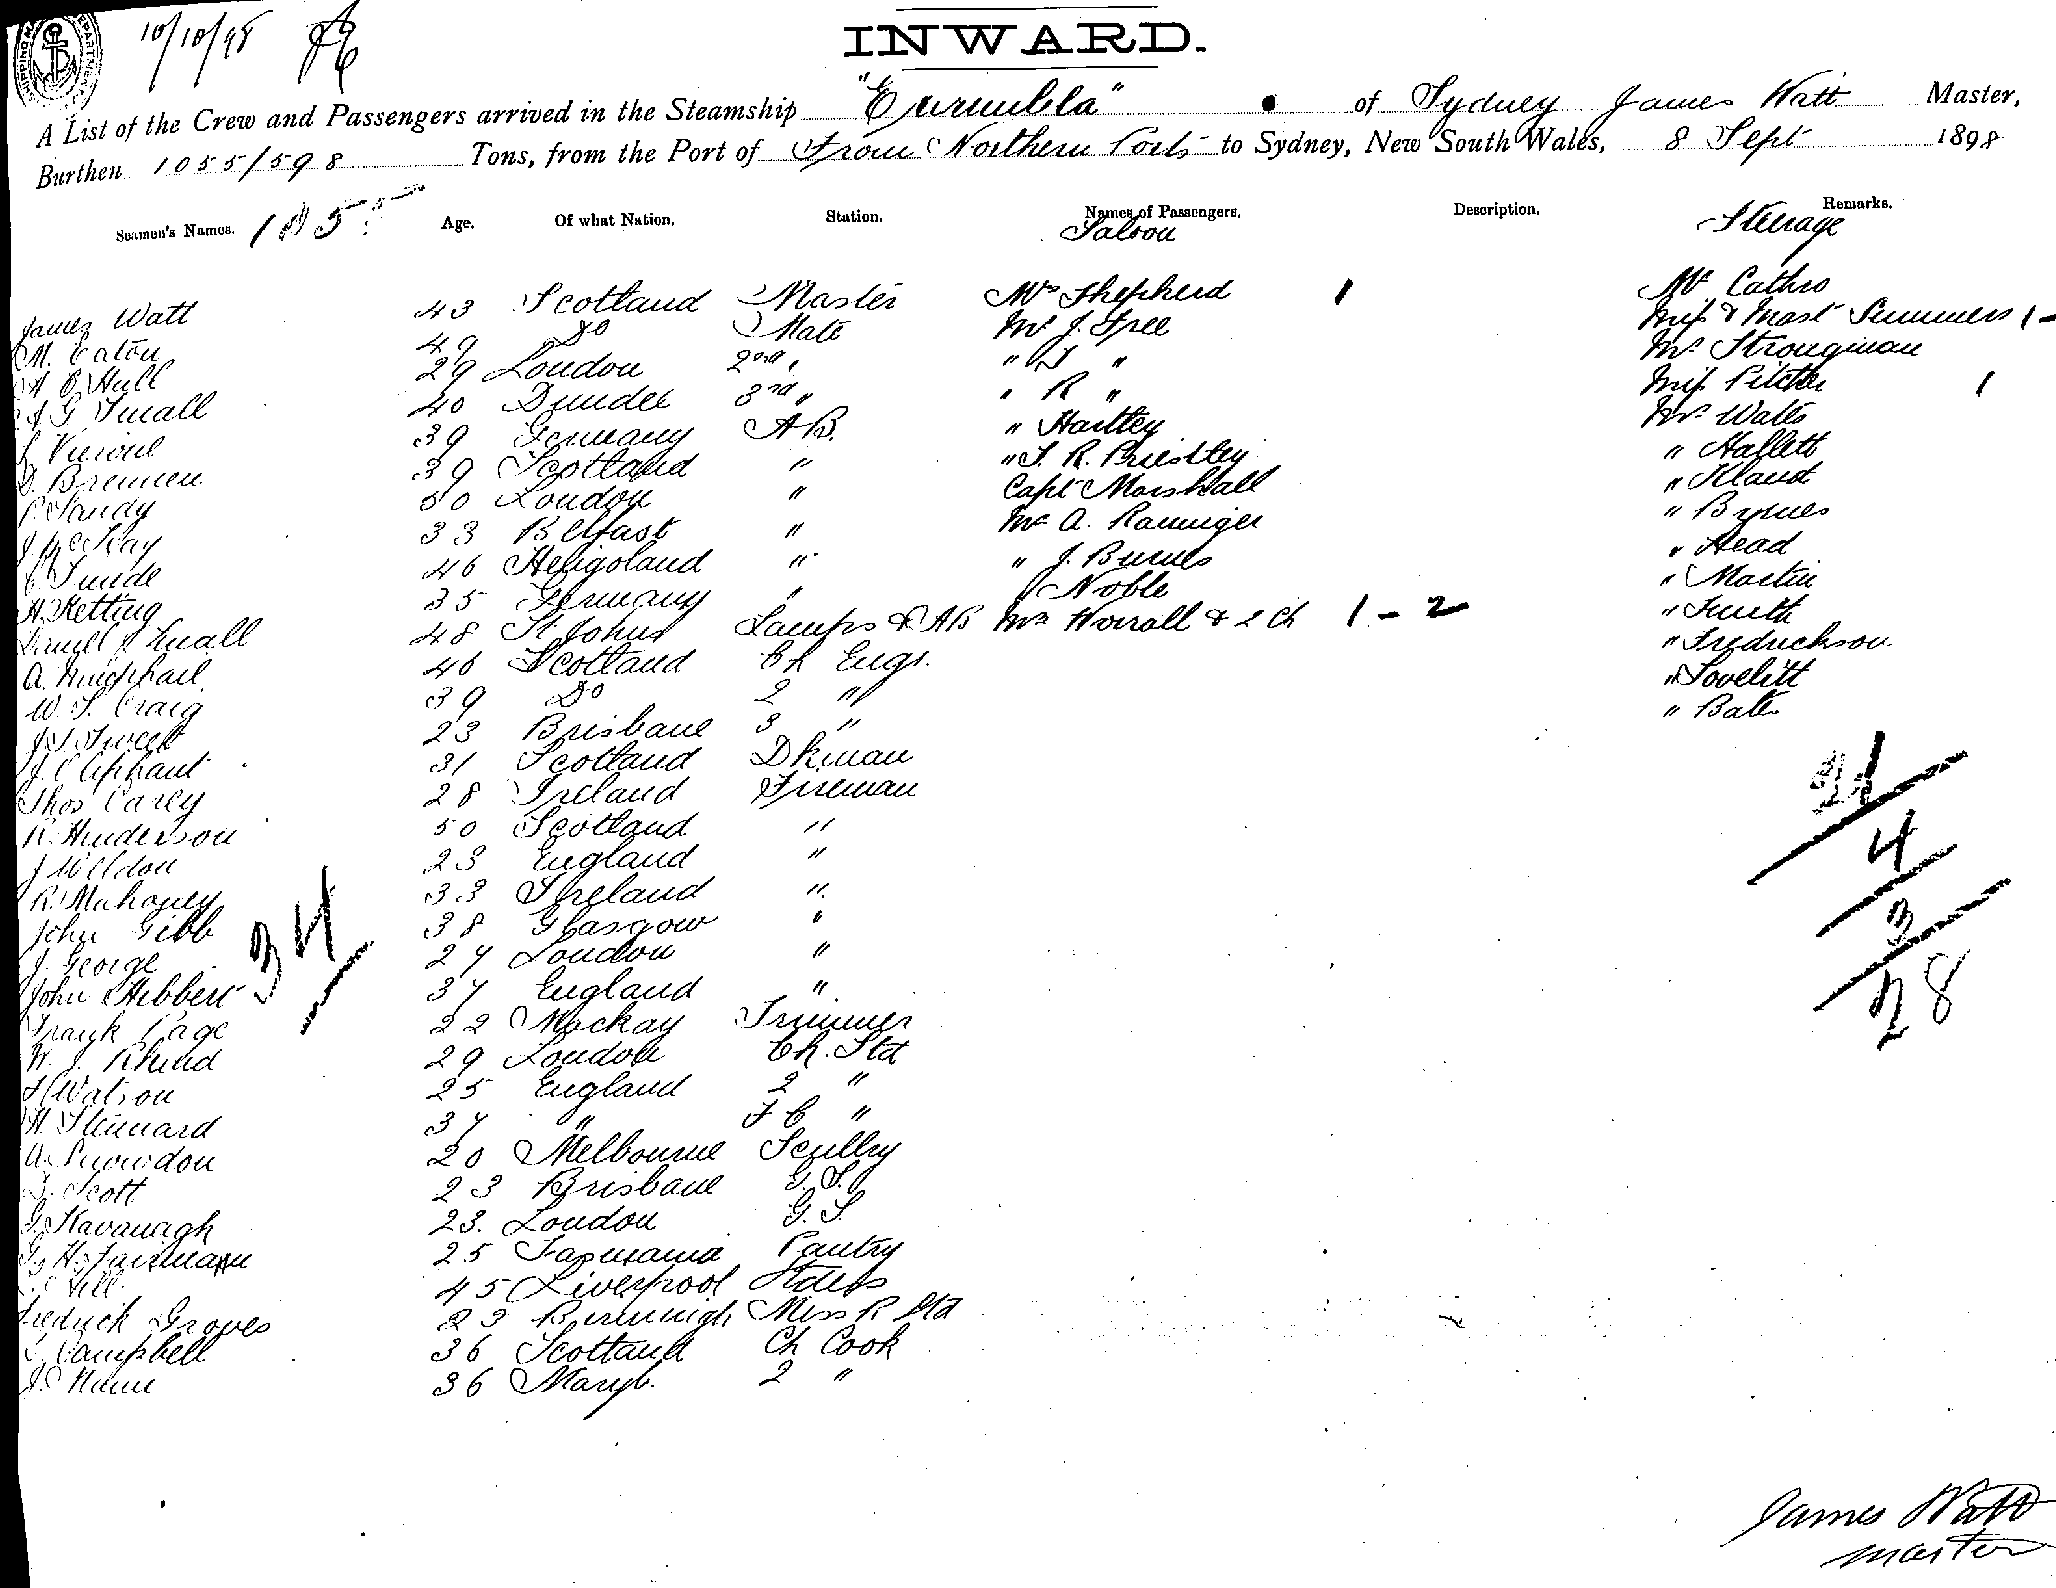 10/10/98
INWARD.
A List of the Crew and Passengers arrived in the Steamship "Eurimbla" of Sydney James Watt Master,
Burthen 1055/598 Tons, from the Port of From Northern Ports to Sydney, New South Wales, 8 Sept 1898
Seamen's Names. Age. Of what Nation. Station. Names of Passengers. Description. Remarks.
1055 Saloon Steerage
James Watt 43 Scotland Master Mrs Shepherd 1 Mr Cathro
M. Eaton 49 Do Mate Mr J. Free Miss & Mast Summers 1 -
Hull 29 London 2nd " " " Mr Strongman
G Small 40 Dundee 3rd " " R " Miss Pitcher 1
39 Germany AB. " Hartley Mr Watts
Brennen 39 Scotland " " Priestley " Hallett
P. Landy 50 London " Capt Marshall "
J McKay 33 Belfast " Mr A. " Byrnes
46 Heligoland " " J. Burns " Head
H. Ketting 35 Germany " Noble " Martin
Small 48 St Johns Lamps & AB Mrs Worrall & 2 Ch 1 - 2 " Smith
A. 46 Scotland Ch Engr. " Fredrickson
W. S. Craig 39 Do 2 " " Lovelitt
23 Brisbane 3 " " Bate
J. Oliphant 31 Scotland Dkman
Thos Carey 28 Ireland Fireman
R. Henderson 50 Scotland "
J Weldon 23 England "
R. Mahoney 33 Ireland "
John Gibb 38 Glasgow "
J. George 27 London "
John Hibbert 37 England "
Frank Page 22 Mackay Trimmer
W. J. Rhind 29 London Ch. Std
Watson 25 England 2 "
H. Stennard 37 " F C "
A. Snowdon 20 Melbourne Scullry
Scott 23 Brisbane G. S.
G. Kavanagh 23. London G. S.
G. H. Fairman 25 Tasmania Pantry
Hill 45 Liverpool Stdess
Fredrick Groves 23 Birmingh Mess R Std
Campbell 36 Scotland Ch Cook
J. 36 Maryb. 2 "
34
21
4
3
28
James Watt
Master